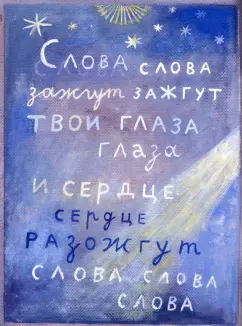 Слова слова
зажгут зажгут
твои глаза
глаза
и сердце
сердце
разожгут
слова слова
слова